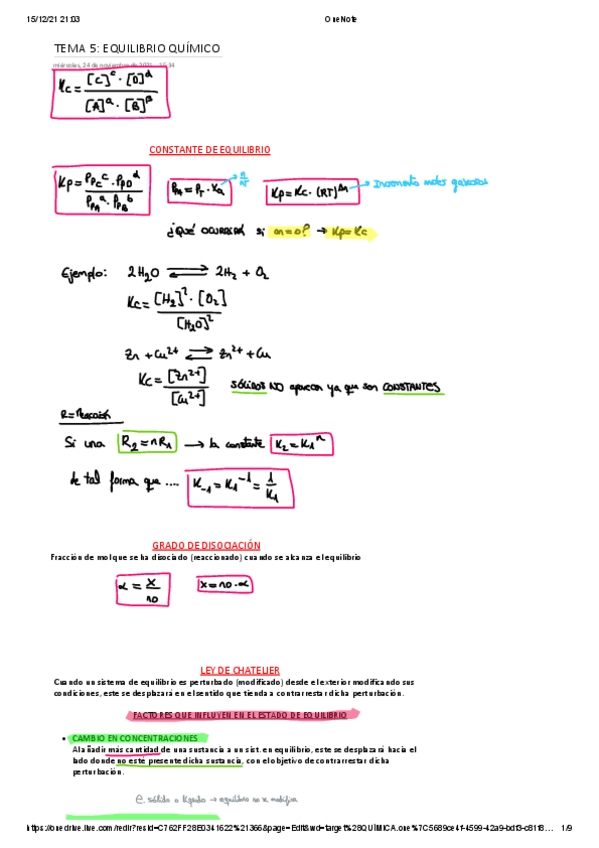 15/12/21 21:03
OneNote
TEMA 5: EQUILIBRIO QUÍMICO
miércoles, 24 de noviembre de 2021
Kc = [C]^c · [D]^d / [A]^a · [B]^B
CONSTANTE DE EQUILIBRIO
Kp = P_PC^c · P_PD^d / P_PA^a · P_PB^b
P_A = P_T · X_a → n/nT
Kp = Kc · (RT)^Δn → Incremento moles gaseosos
¿QUÉ OCURRIRÁ si Δn=0? → Kp=Kc
Ejemplo: 2H2O ⇌ 2H2 + O2
Kc = [H2]^2 · [O2] / [H2O]^2
Zn + Cu2+ ⇌ Zn2+ + Cu
Kc = [Zn2+] / [Cu2+]
SÓLIDOS NO aparecen ya que son CONSTANTES
R = Reacción
Si una R2 = nR1 → la constante K2 = K1^n
de tal forma que .... K-1 = K1^-1 = 1/K1
GRADO DE DISOCIACIÓN
Fracción de mol que se ha disociado (reaccionado) cuando se alcanza el equilibrio
α = x/no
x = no · α
LEY DE CHATELIER
Cuando un sistema de equilibrio es perturbado (modificado) desde el exterior modificando sus
condiciones, este se desplazará en el sentido que tienda a contrarrestar dicha perturbación.
FACTORES QUE INFLUYEN EN EL ESTADO DE EQUILIBRIO
• CAMBIO EN CONCENTRACIONES
Al añadir más cantidad de una sustancia a un sist. en equilibrio, este se desplazará hacia el
lado donde no esté presente dicha sustancia, con el objetivo de contrarrestar dicha
perturbación.
C. sólido o líquido → equilibrio no se modifica
1/9